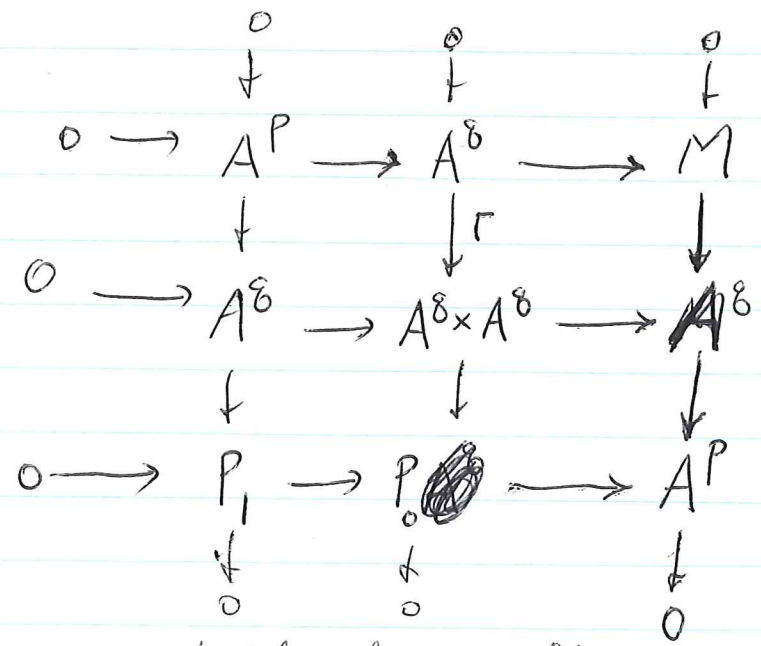 0 0 0
0 → A^p → A^q → M
↓ ↓ Γ ↓
0 → A^q → A^q × A^q → A^q
↓ ↓ ↓
0 → P_1 → P_0 → A^p
↓ ↓ ↓
0 0 0